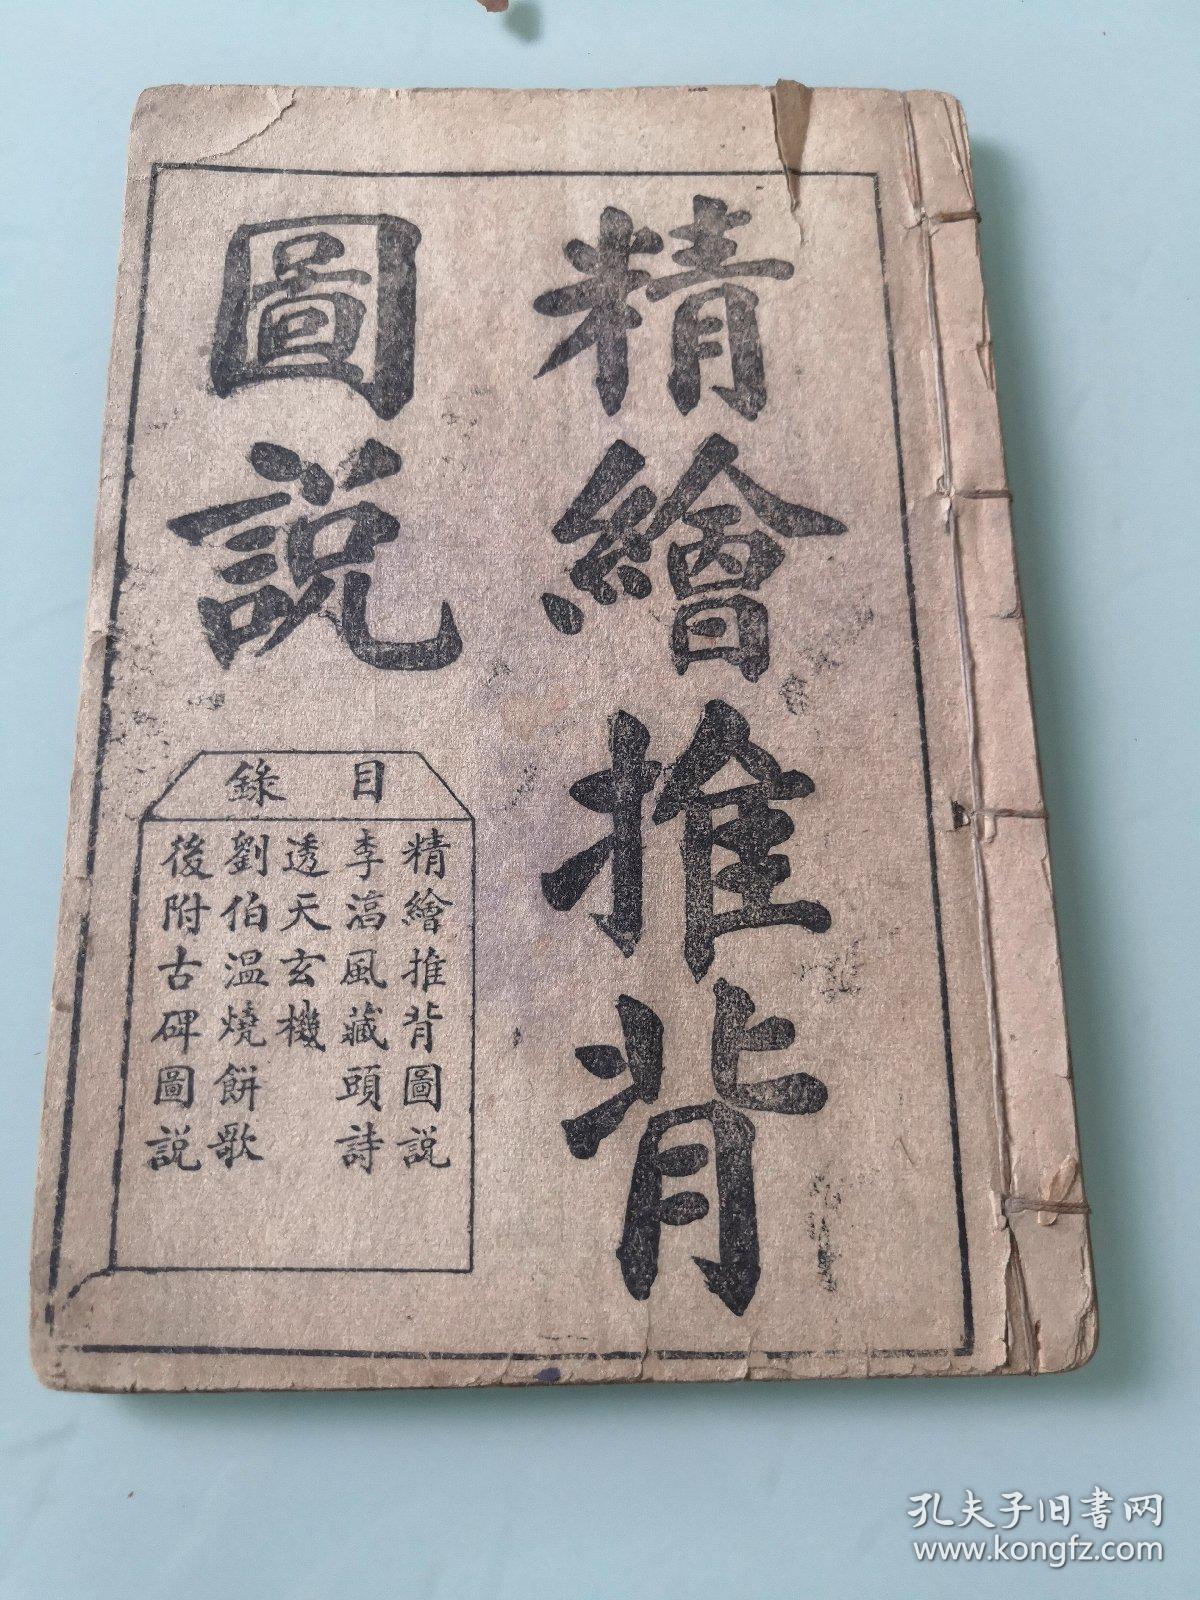 精繪推背
圖說
目錄
精繪推背圖說
李淳風藏頭詩
透天玄機
劉伯温燒餅歌
後附古碑圖說
孔夫子旧書网
www.kongfz.com